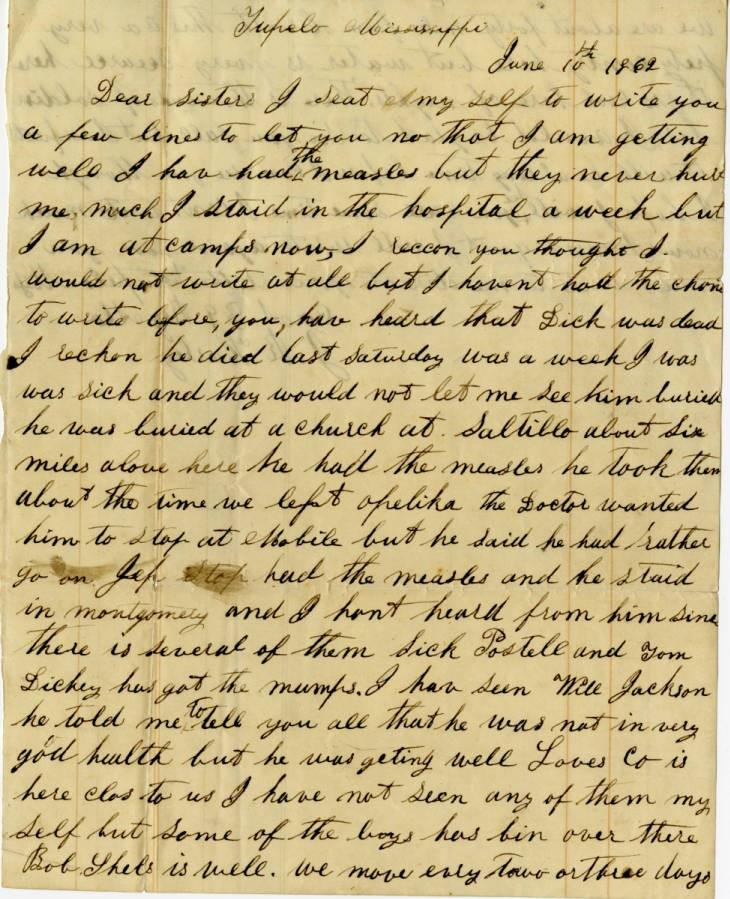 Tupelo Mississippi
June 10th 1862
Dear Sisters I seat my self to write you
a few lines to let you no that I am getting
well I hav had the measles but they never hurt
me much I staid in the hospital a week but
I am at camps now, I reccon you thought I
would not write at all but I havent had the chance
to write before, you, hav heard that Dick was dead
I reckon he died last Saturday was a week I was
was sick and they would not let me see him buried
he was buried at a church at Saltillo about six
miles above here he had the measles he took them
about the time we left opelika the Doctor wanted
him to stop at Mobile but he said he had rather
go on Jef had the measles and he staid
in montgomery and I hant heard from him since
there is several of them sick Postell and Tom
Dickey has got the mumps. I hav seen Will Jackson
he told me to tell you all that he was not in very
good health but he was geting well Loves Co is
here clos to us I have not seen any of them my
self but some of the boys has bin over there
Bob is well. we move evry towo or three days